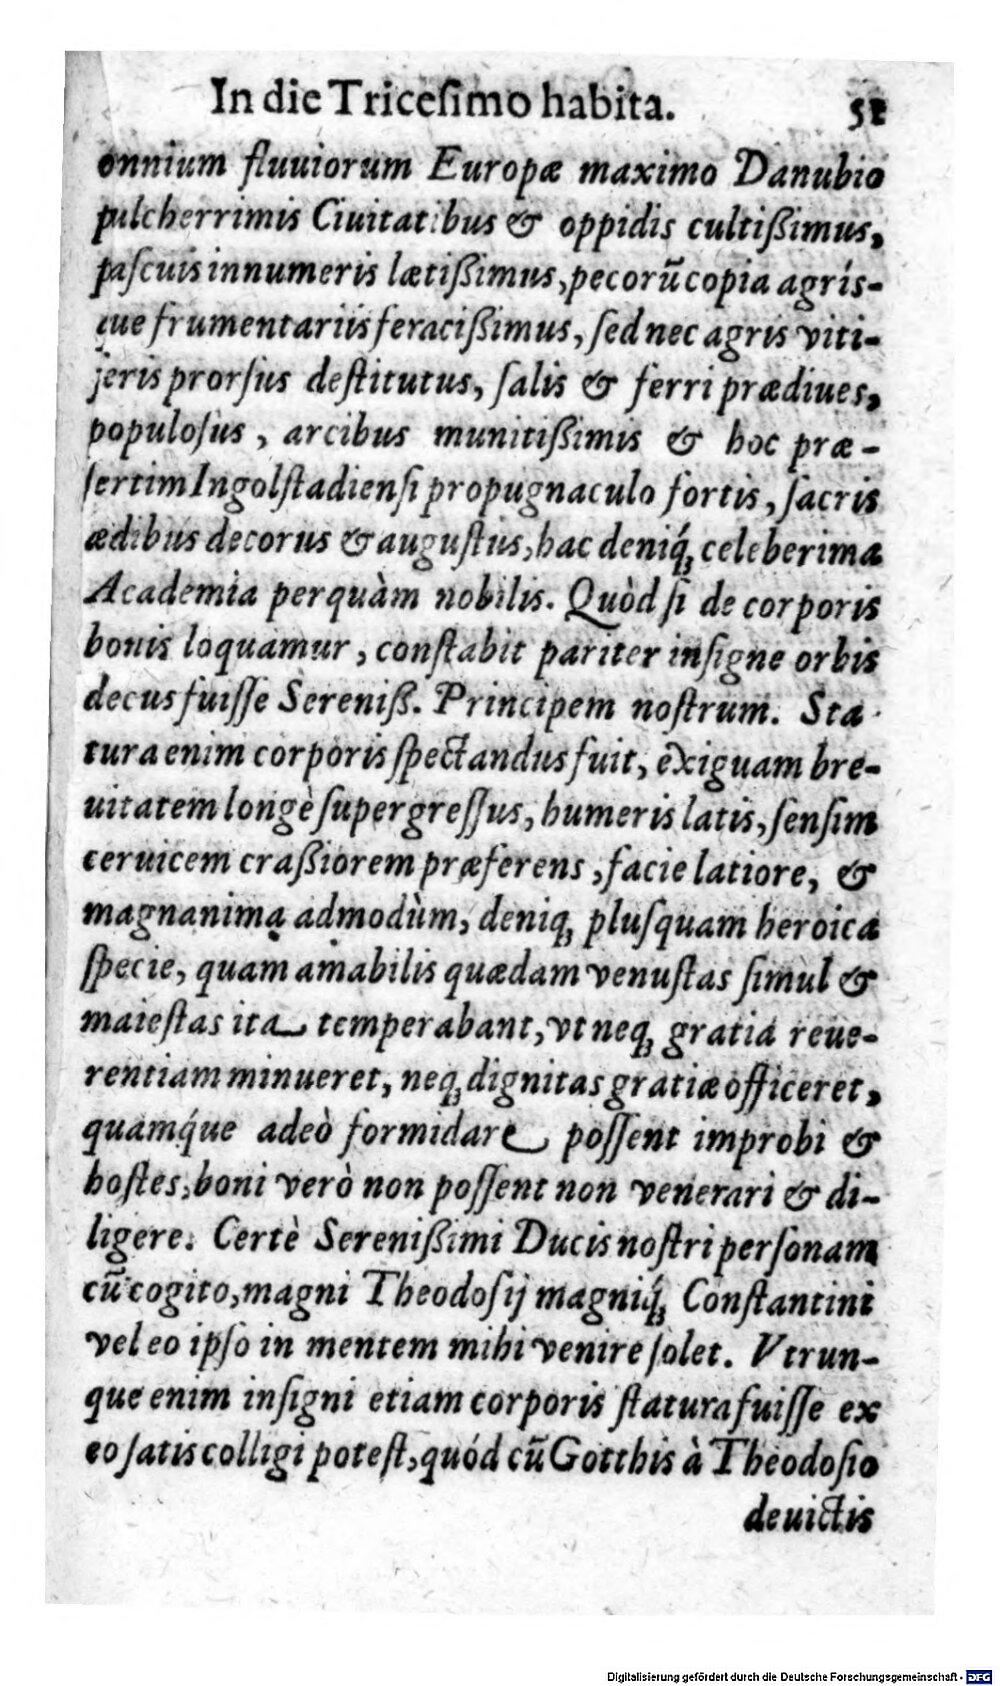 In die Tricesimo habita. 51
omnium fluuiorum Europæ maximo Danubio
pulcherrimis Ciuitatibus & oppidis cultißimus,
paſcuis innumeris lætißimus, pecorũ copia agríſ-
que frumentariis feracißimus, ſed nec agris viti-
feris prorſus deſtitutus, ſalis & ferri prædiues,
populoſus, arcibus munitißimis & hoc præ-
ſertim Ingolſtadienſi propugnaculo fortis, ſacris
ædibus decorus & auguſtus, hac deniq́ꝫ celeberima
Academia perquàm nobilis. Quòd ſi de corporis
bonis loquamur, conſtabit pariter inſigne orbis
decus fuiſſe Sereniß. Principem noſtrum. Sta-
tura enim corporis ſpectandus fuit, exiguam bre-
uitatem longè ſupergreſſus, humeris latis, ſenſim
ceruicem craßiorem præferens, facie latiore, &
magnanima admodùm, deniqꝫ pluſquam heroica
ſpecie, quam amabilis quædam venuſtas ſimul &
maieſtas ita temperabant, vt neqꝫ gratia reue-
rentiam minueret, neqꝫ dignitas gratiæ officeret,
quamq́ue adeò formidare poſſent improbi &
hoſtes, boni verò non poſſent non venerari & di-
ligere. Certè Sereniſſimi Ducis noſtri perſonam
cũ cogito, magni Theodoſij magniq́ꝫ Conſtantini
vel eo ipſo in mentem mihi venire ſolet. Vtrun-
que enim inſigni etiam corporis ſtatura fuiſſe ex
eo ſatis colligi poteſt, quód cũ Gotthis à Theodoſio
deuictis
Digitalisierung gefördert durch die Deutsche Forschungsgemeinschaft - DFG